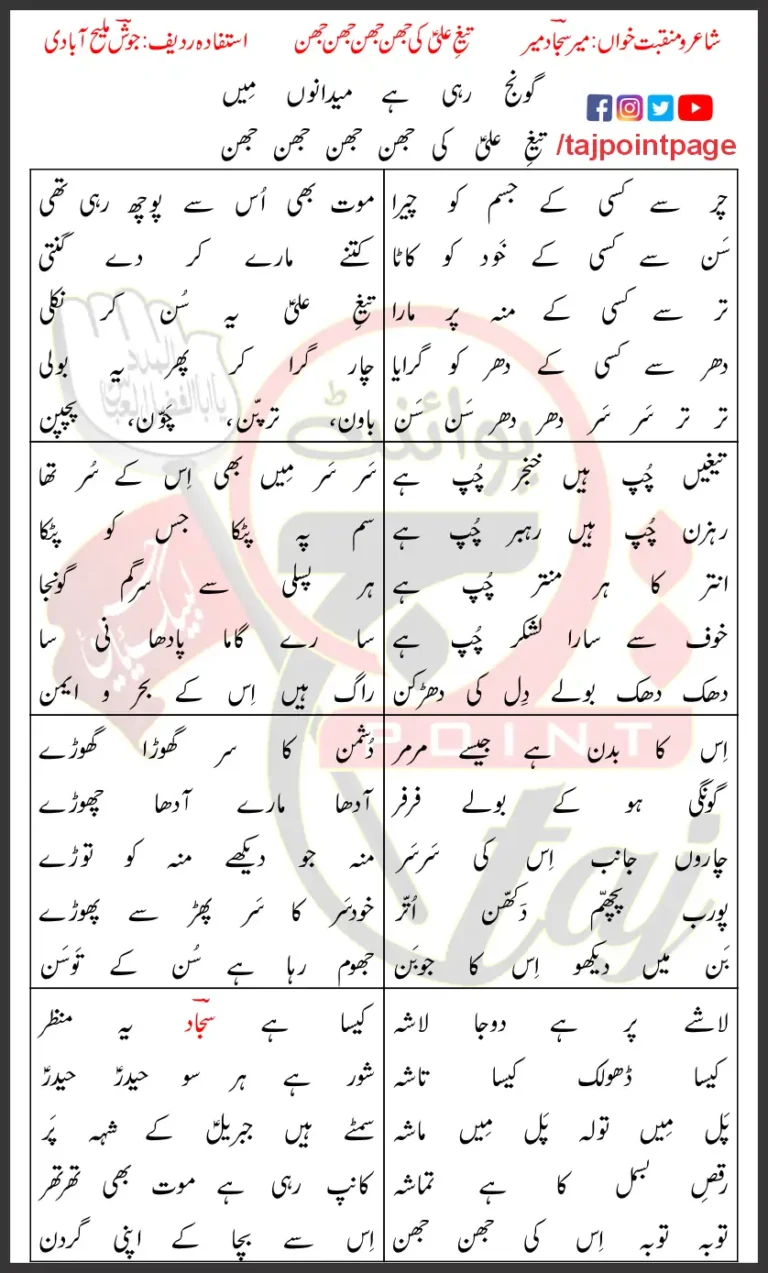 شاعر و منقبت خواں: میر سجادؔ میر
تیغِ علیؑ کی جھن جھن جھن جھن
استفادہ ردیف: جوشؔ ملیح آبادی
گونج رہی ہے میدانوں مِیں
تیغِ علیؑ کی جھن جھن جھن جھن
/tajpointpage
چر سے کسی کے جسم کو چیرا
سَن سے کسی کے خَود کو کاٹا
تر سے کسی کے منہ پر مارا
دھر سے کسی کے دھر کو گرایا
تر تر سَر سَر دھر دھر سَن سَن
موت بھی اُس سے پوچھ رہی تھی
کتنے مارے کر دے گنتی
تیغِ علیؑ یہ سُن کر نکلی
چار گرا کر پھر یہ بولی
باون، ترپّن، چوّن، پچپن
تیغیں چُپ ہیں خنجر چُپ ہے
رہزن چُپ ہیں رہبر چُپ ہے
انتر کا ہر منتر چُپ ہے
خوف سے سارا لشکر چُپ ہے
دھک دھک بولے دِل کی دھڑکن
سَر سَر مِیں بھی اِس کے سُر تھا
سم پہ پٹکا جس کو پٹکا
ہر پسلی سے سرگم گونجا
سا رے گاما پادھا نی سا
راگ ہیں اِس کے بحر و ایمن
اِس کا بدن ہے جیسے مرمر
گونگی ہو کے بولے فرفر
چاروں جانب اِس کی سَرسَر
پورب پچھّم دَکھّن اُتّر
بَن میں دیکھو اِس کا جوبَن
دُشمن کا سر گھوڑا گھوڑے
آدھا مارے آدھا چھوڑے
منہ جو دیکھے منہ کو توڑے
خودسَر کا سَر پھڑ سے پھوڑے
جھوم رہا ہے سُن کے توسَن
لاشے پر ہے دوجا لاشہ
کیسا ڈھولک کیسا تاشہ
پَل مِیں تولہ پَل مِیں ماشہ
رقصِ بسمل کا ہے تماشہ
توبہ توبہ اِس کی جھن جھن
کیسا ہے سجّادؔ یہ منظر
شور ہے ہر سو حیدرؑ حیدرؑ
سمٹے ہیں جبریلؑ کے شہہ پَر
کانپ رہی ہے موت بھی تھرتھر
اِس سے بچا کے اپنی گردن
پوائنٹ
POINT
taj